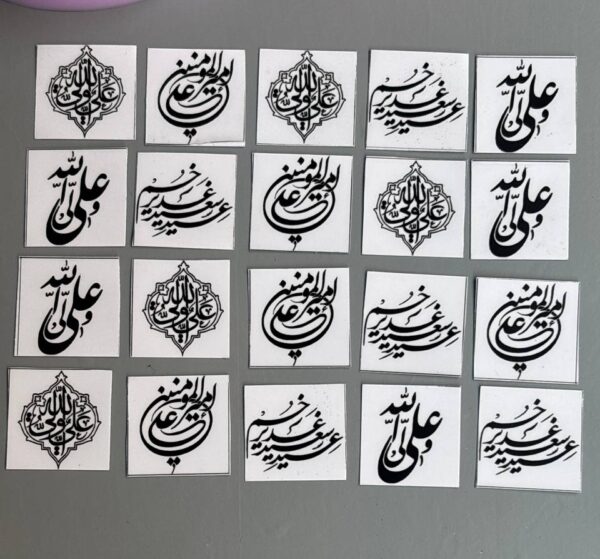 علی ولی الله
امیرالمومنین علی
علی ولی الله
عید سعید غدیر خم
علی ولی الله
علی ولی الله
عید سعید غدیر خم
امیرالمومنین علی
علی ولی الله
علی ولی الله
علی ولی الله
علی ولی الله
امیرالمومنین علی
عید سعید غدیر خم
امیرالمومنین علی
علی ولی الله
امیرالمومنین علی
عید سعید غدیر خم
علی ولی الله
عید سعید غدیر خم